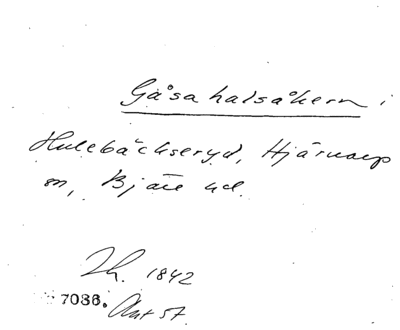 Gåsahalsåkern i
Hulebäckseryd, Hjärnarp
sn, Bjäre hd.
Th. 1842
7086. Ant 57